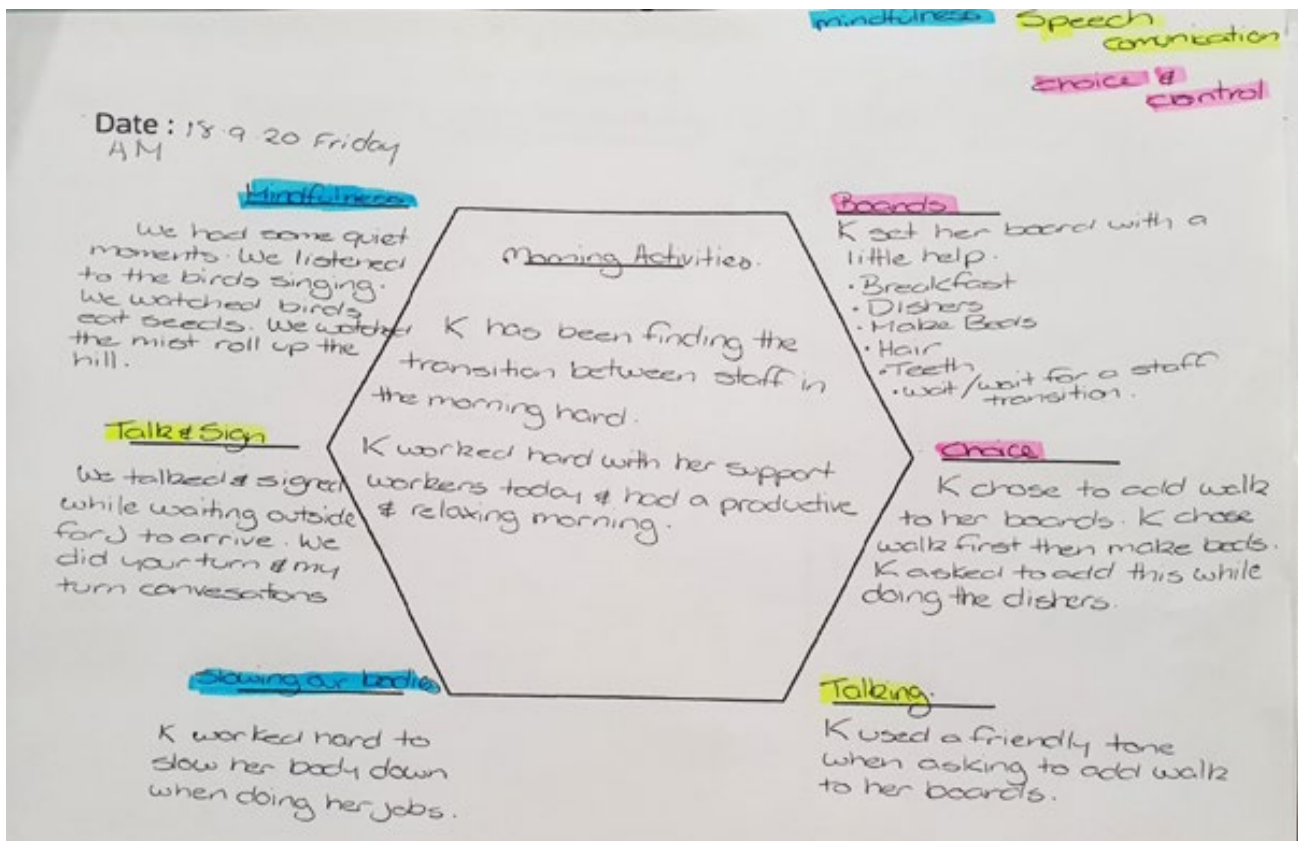 mindfulness
Speech
comunication
choice &
control
Date : 18.9.20 Friday
AM
Mindfulness
We had some quiet
moments. We listened
to the birds singing.
We watched birds
eat seeds. We watched
the mist roll up the
hill.
Talk & Sign
We talked & signed
while waiting outside
for J to arrive. We
did your turn & my
turn convesations
Slowing our bodies
K worked hard to
slow her body down
when doing her jobs.
Morning Activities.
K has been finding the
transition between staff in
the morning hard.
K worked hard with her support
workers today & had a productive
& relaxing morning.
Boards
K set her board with a
little help.
· Breakfast
· Dishers
· Make Beds
· Hair
· Teeth
· wait/wait for a staff
transition.
Choice
K chose to add walk
to her boards. K chose
walk first then make beds.
K asked to add this while
doing the dishers.
Talking.
K used a friendly tone
when asking to add walk
to her boards.